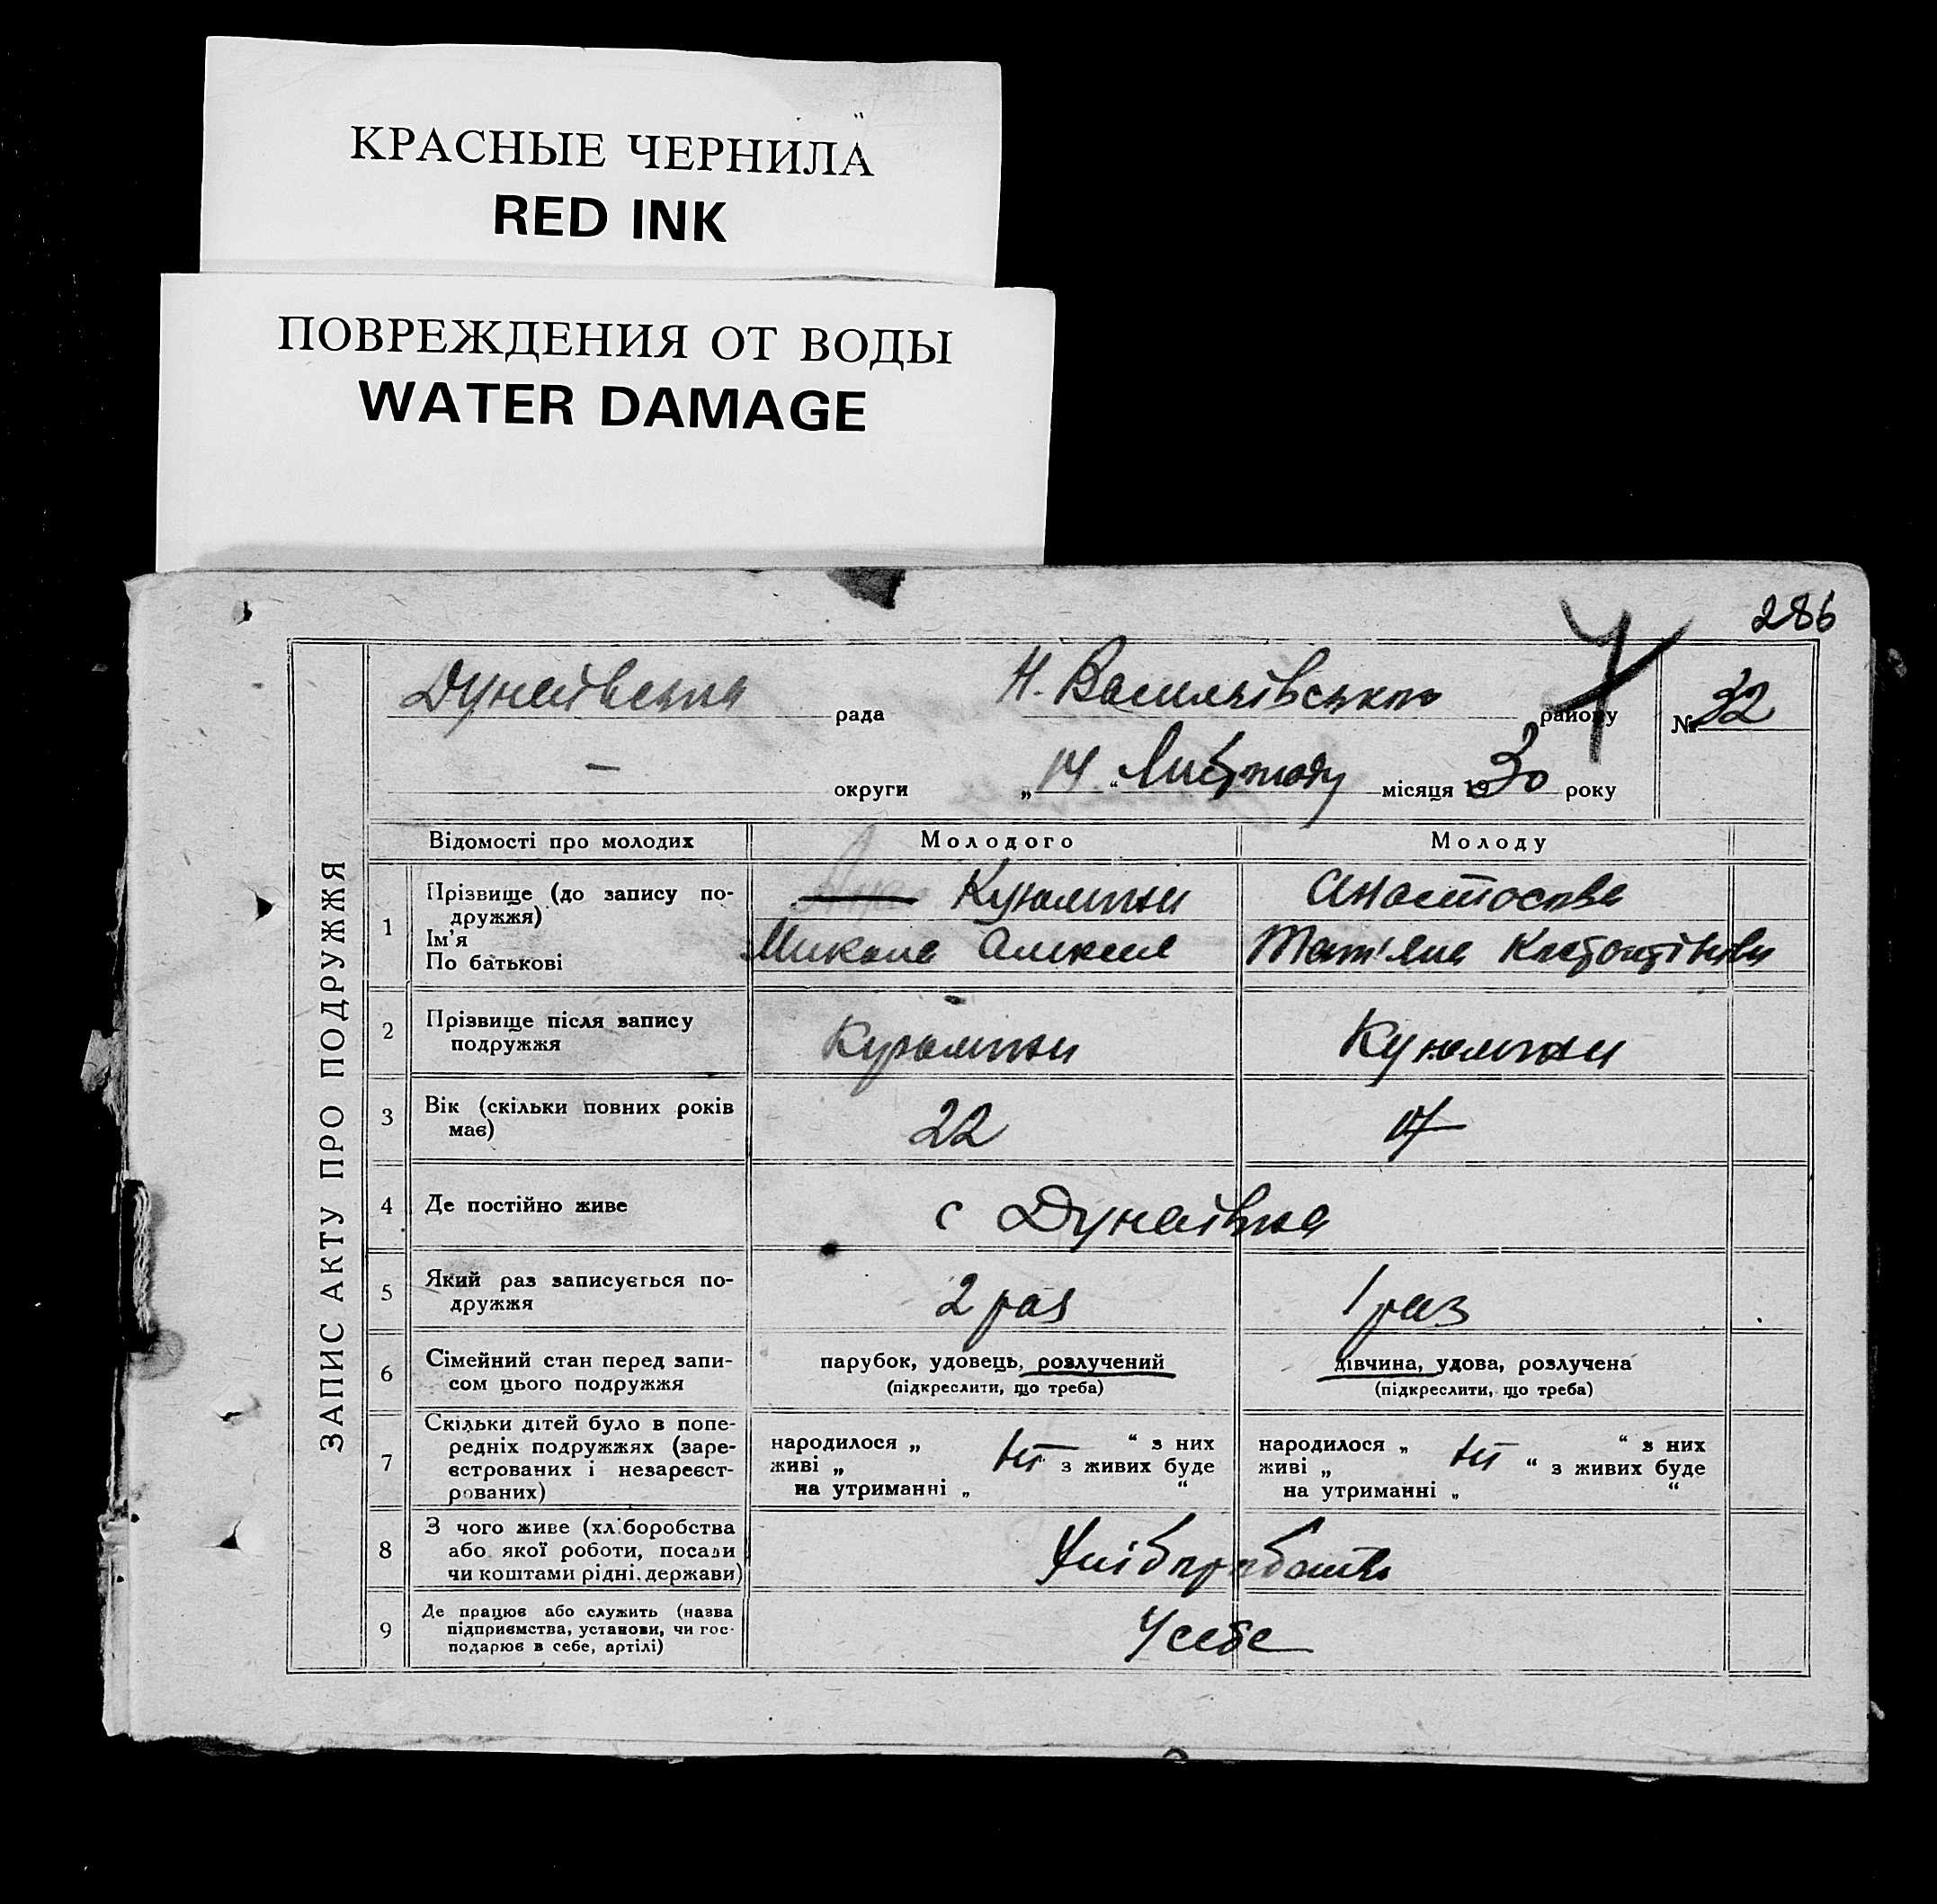 КРАСНЫЕ ЧЕРНИЛА
RED INK
ПОВРЕЖДЕНИЯ ОТ ВОДЫ
WATER DAMAGE
286
ЗАПИС АКТУ ПРО ПОДРУЖЖЯ
Дунаївська рада Н. Васильівського району № 32
— округи „14“ Листопаду місяця 1930 року
Відомості про молодих Молодого Молоду
1 Прізвище (до запису по-
дружжя)
Ім'я
По батькові
Микола Алексея
Тат'яна
2 Прізвище після запису
подружжя
3 Вік (скільки повних років
має)
22 17
4 Де постійно живе с Дунаівка
5 Який раз записується по-
дружжя
2 раз 1 раз
6 Сімейний стан перед запи-
сом цього подружжя
парубок, удовець, розлучений
(підкреслити, що треба)
дівчина, удова, розлучена
(підкреслити, що треба)
7 Скільки дітей було в попе-
редніх подружжях (заре-
єстрованих і незареєст-
рованих)
народилося „ “ з них
живі „ ні з живих буде
на утриманні „ “
народилося „ “ з них
живі „ ні “ з живих буде
на утриманні „ “
8 З чого живе (хліборобства
або якої роботи, посади
чи коштами рідні, держави)
9 Де працює або служить (назва
підприємства, установи, чи гос-
подарює в себе, артілі)
У себе